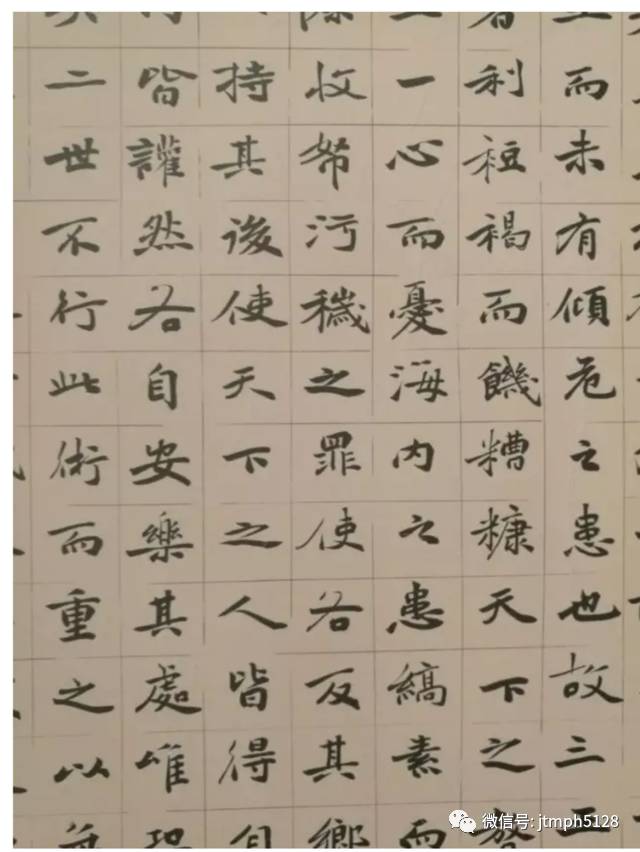 而未有傾危之患也故三王
者利裋褐而饑糟糠天下之
一心而憂海內之患縞素而
除收帑污穢之罪使各反其鄉
持其後使天下之人皆得自
皆讙然各自安樂其處唯恐
二世不行此術而重之以無
微信号: jtmph5128